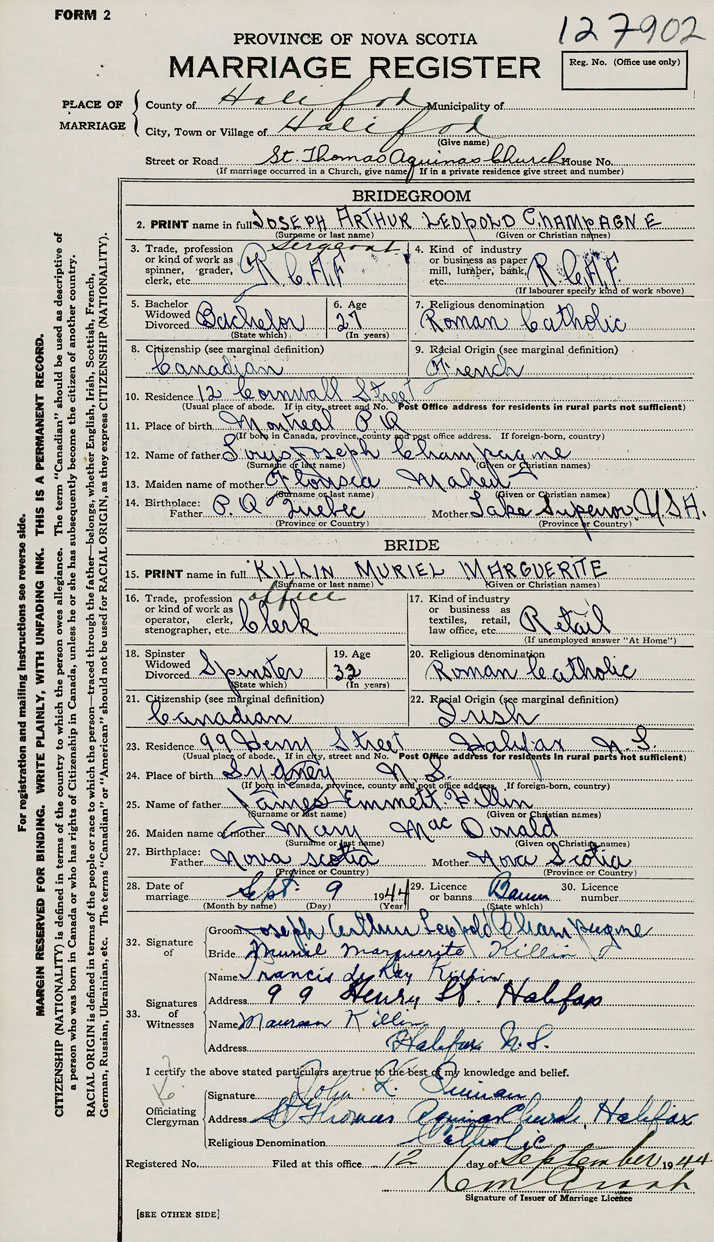 FORM 2
127902
PROVINCE OF NOVA SCOTIA
MARRIAGE REGISTER
Reg. No. (Office use only)
PLACE OF MARRIAGE
County of Halifax Municipality of
City, Town or Village of Halifax
(Give name)
Street or Road St. Thomas Aquinas Church House No.
(If marriage occurred in a Church, give name. If in a private residence give street and number)
BRIDEGROOM
2. PRINT name in full JOSEPH ARTHUR LEOPOLD CHAMPAGNE
(Surname or last name) (Given or Christian names)
3. Trade, profession or kind of work as spinner, grader, clerk, etc. Sergeant R.C.A.F
4. Kind of industry or business as paper mill, lumber, bank, etc. R.C.A.F.
(If labourer specify kind of work above)
5. Bachelor Widowed Divorced Bachelor
(State which)
6. Age 27
(In years)
7. Religious denomination
Roman Catholic
8. Citizenship (see marginal definition)
Canadian
9. Racial Origin (see marginal definition)
French
10. Residence 12 Cornwall Street
(Usual place of abode. If in city, street and No. Post Office address for residents in rural parts not sufficient)
11. Place of birth Montreal P.Q
(If born in Canada, province, county and post office address. If foreign-born, country)
12. Name of father Louis Joseph Champagne
(Surname or last name) (Given or Christian names)
13. Maiden name of mother Maheu
(Surname or last name) (Given or Christian names)
14. Birthplace: Father P.Q Quebec Mother Lake Superior, U.S.A.
(Province or Country) (Province or Country)
BRIDE
15. PRINT name in full KILLIN MURIEL MARGUERITE
(Surname or last name) (Given or Christian names)
16. Trade, profession or kind of work as operator, clerk, stenographer, etc. office Clerk
17. Kind of industry or business as textiles, retail, law office, etc. Retail
(If unemployed answer "At Home")
18. Spinster Widowed Divorced Spinster
(State which)
19. Age 32
(In years)
20. Religious denomination
Roman Catholic
21. Citizenship (see marginal definition)
Canadian
22. Racial Origin (see marginal definition)
Irish
23. Residence 99 Henry Street Halifax N.S.
(Usual place of abode. If in city, street and No. Post Office address for residents in rural parts not sufficient)
24. Place of birth Sydney N.S.
(If born in Canada, province, county and post office address. If foreign-born, country)
25. Name of father James Emmett Killin
(Surname or last name) (Given or Christian names)
26. Maiden name of mother Mary Mac Donald
(Surname or last name) (Given or Christian names)
27. Birthplace: Father Nova Scotia Mother Nova Scotia
(Province or Country) (Province or Country)
28. Date of marriage Sept. 9 1944
(Month by name) (Day) (Year)
29. Licence or banns Banns
(State which)
30. Licence number
32. Signature of
Groom Joseph Arthur Leopold Champagne
Bride Muriel Marguerite Killin
33. Signatures of Witnesses
Name Francis
Address 99 Henry St. Halifax
Name Maureen Killin
Address Halifax N.S.
I certify the above stated particulars are true to the best of my knowledge and belief.
Officiating Clergyman
Signature John L. Quinan
Address St Thomas Aquinas Church, Halifax
Religious Denomination Catholic
Registered No. Filed at this office 12 day of September 1944
Signature of Issuer of Marriage Licence
[SEE OTHER SIDE]
For registration and mailing instructions see reverse side.
MARGIN RESERVED FOR BINDING. WRITE PLAINLY, WITH UNFADING INK. THIS IS A PERMANENT RECORD.
CITIZENSHIP (NATIONALITY) is defined in terms of the country to which the person owes allegiance. The term "Canadian" should be used as descriptive of
a person who was born in Canada or who has rights of Citizenship in Canada, unless he or she has subsequently become the citizen of another country.
RACIAL ORIGIN is defined in terms of the people or race to which the person—traced through the father—belongs, whether English, Irish, Scottish, French,
German, Russian, Ukrainian, etc. The terms "Canadian" or "American" should not be used for RACIAL ORIGIN, as they express CITIZENSHIP (NATIONALITY).